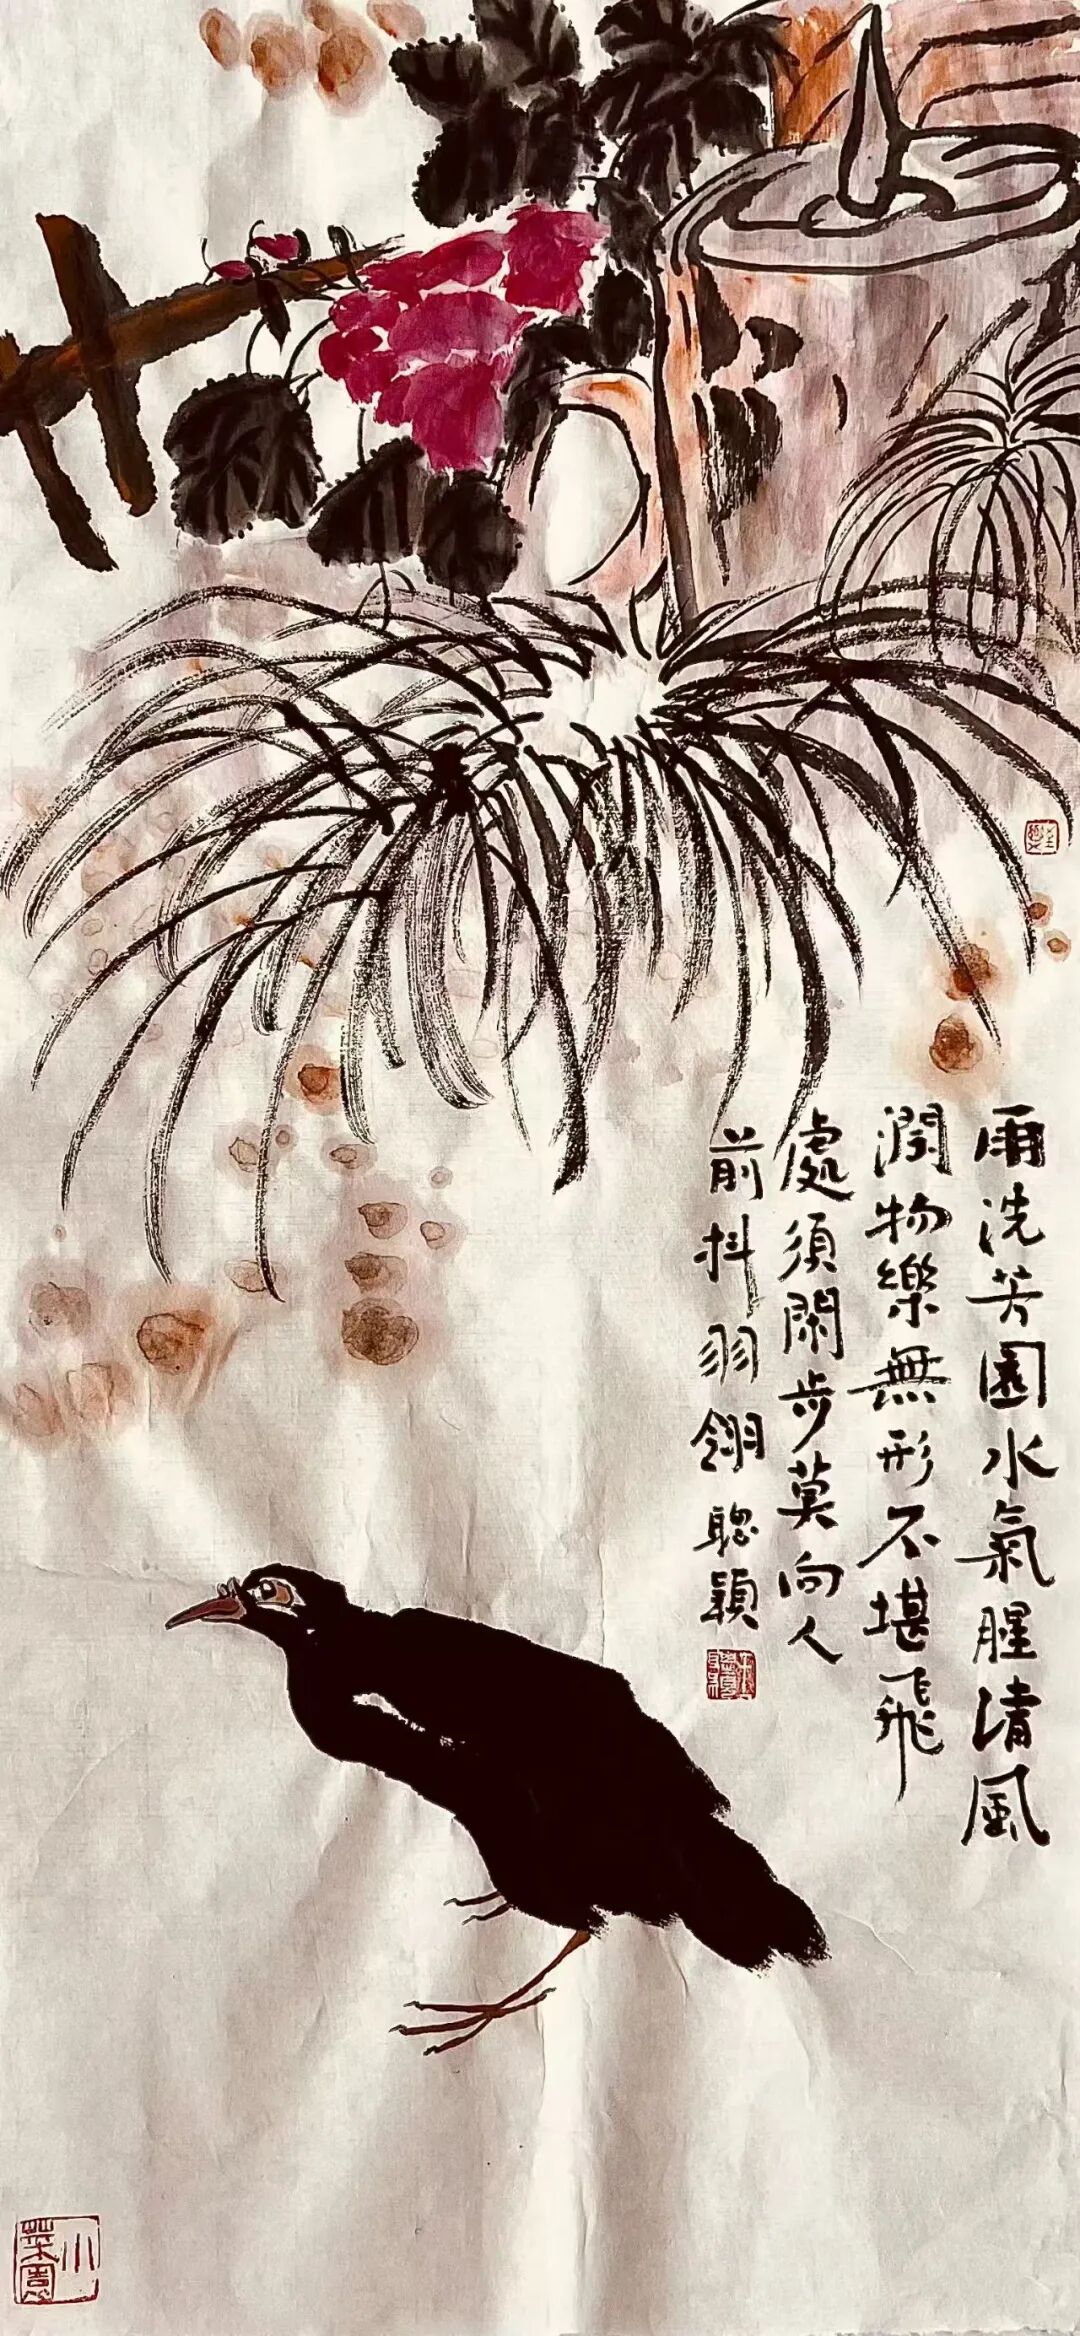 雨洗芳園水氣腥清風
潤物樂無形不堪飛
處須閑步莫向人
前抖羽翎 聪穎